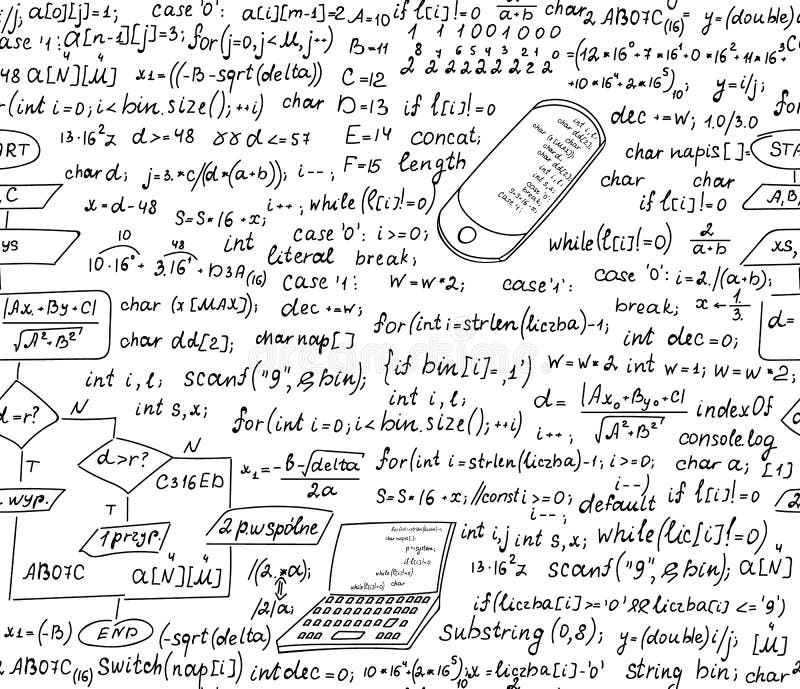 i/j; a[0][j]=1; case '0': a[i][m-1]=2 A=10 if l[i]!=0 a+b char 2 AB07C(16) = y=(double)
ase '1: a[n-1][j]=3; for(j=0,j<M,j++) B=11 1 1 1001000
8 7 6 5 4 3 2 1 0
2 2 2 2 2 2 2 2 2 =(12*16⁰+7*16¹+0*16²+11*16³
48 a[N][M] x1=((-B-sqrt(delta)) C=12 +10*16⁴+2*16⁵)10; y=i/j;
r(int i=0;i<bin.size();++i) char D=13 if l[i]!=0 dec +=W; 1.0/3.0 for
ART 13·16²z d>=48 && d<=57 E=14 concat; char napis[]= STA
char d; j=3.*c/(d*(a+b)); i--; F=15 length char char
, C x=d-48 S=S*16+x; i++; while(l[i]!=0) if l[i]!=0 A,B
int i,l;
char dd[2];
char
char (x[MAX]);
char d;
dd[2];
int i,l;
int s,x;
case '0':
break;
S=S*16+x;
case '1;
ys 10 48 int case '0': i>=0; while(l[i]!=0) 2/a+b xs,
10·16⁰ + 3·16¹ + D3A(16) literal break;
case '1': W=W*2; case'1': case '0': i=2./(a+b);
|Ax+By+C| char (x[MAX]); dec +=W; break; x←1/3.
√A²+B² char dd[2]; char nap[] for(int i=strlen(liczba)-1; int dec=0; d=
int i,l; scanf("9",&bin); {if bin[i]=,1') W=W*2 int W=1; W=W*2;
d=r? N int s,x; int i,l; d= |Ax₀+By₀+C| indexOf
for(int i=0;i<bin.size();++i) i++; √A²+B² consolelog
d>r? N x₁=-b-√delta for(int i=strlen(liczba)-1; i>=0; char a; [1]
T C316ED 2a S=S*16+x; //const i>=0; i--) default if l[i]!=0
wyp. T 2 p.wspólne i--;
1 przyp. int i,j int s,x; while(lic[i]!=0)
for(int i=strlen(liczba)-1;
char napis[];
p=system;
if l[i]!=0
while(l[i]!=0)
while(l[i]!=0) char
AB07C a[N][M] /(2.*a); 13·16²z scanf("9",&bin); a[N]
/2/a; if(liczba[i]>='0'&&liczba[i]<='9')
x1=(-B) END (-sqrt(delta) Substring(0,8); y=(double)i/j; [M]
2 AB07C(16) Switch(nap[i]) int dec=0; 10*16⁴+(2*16⁵)10;x =liczba[i]-'0' string bin; char